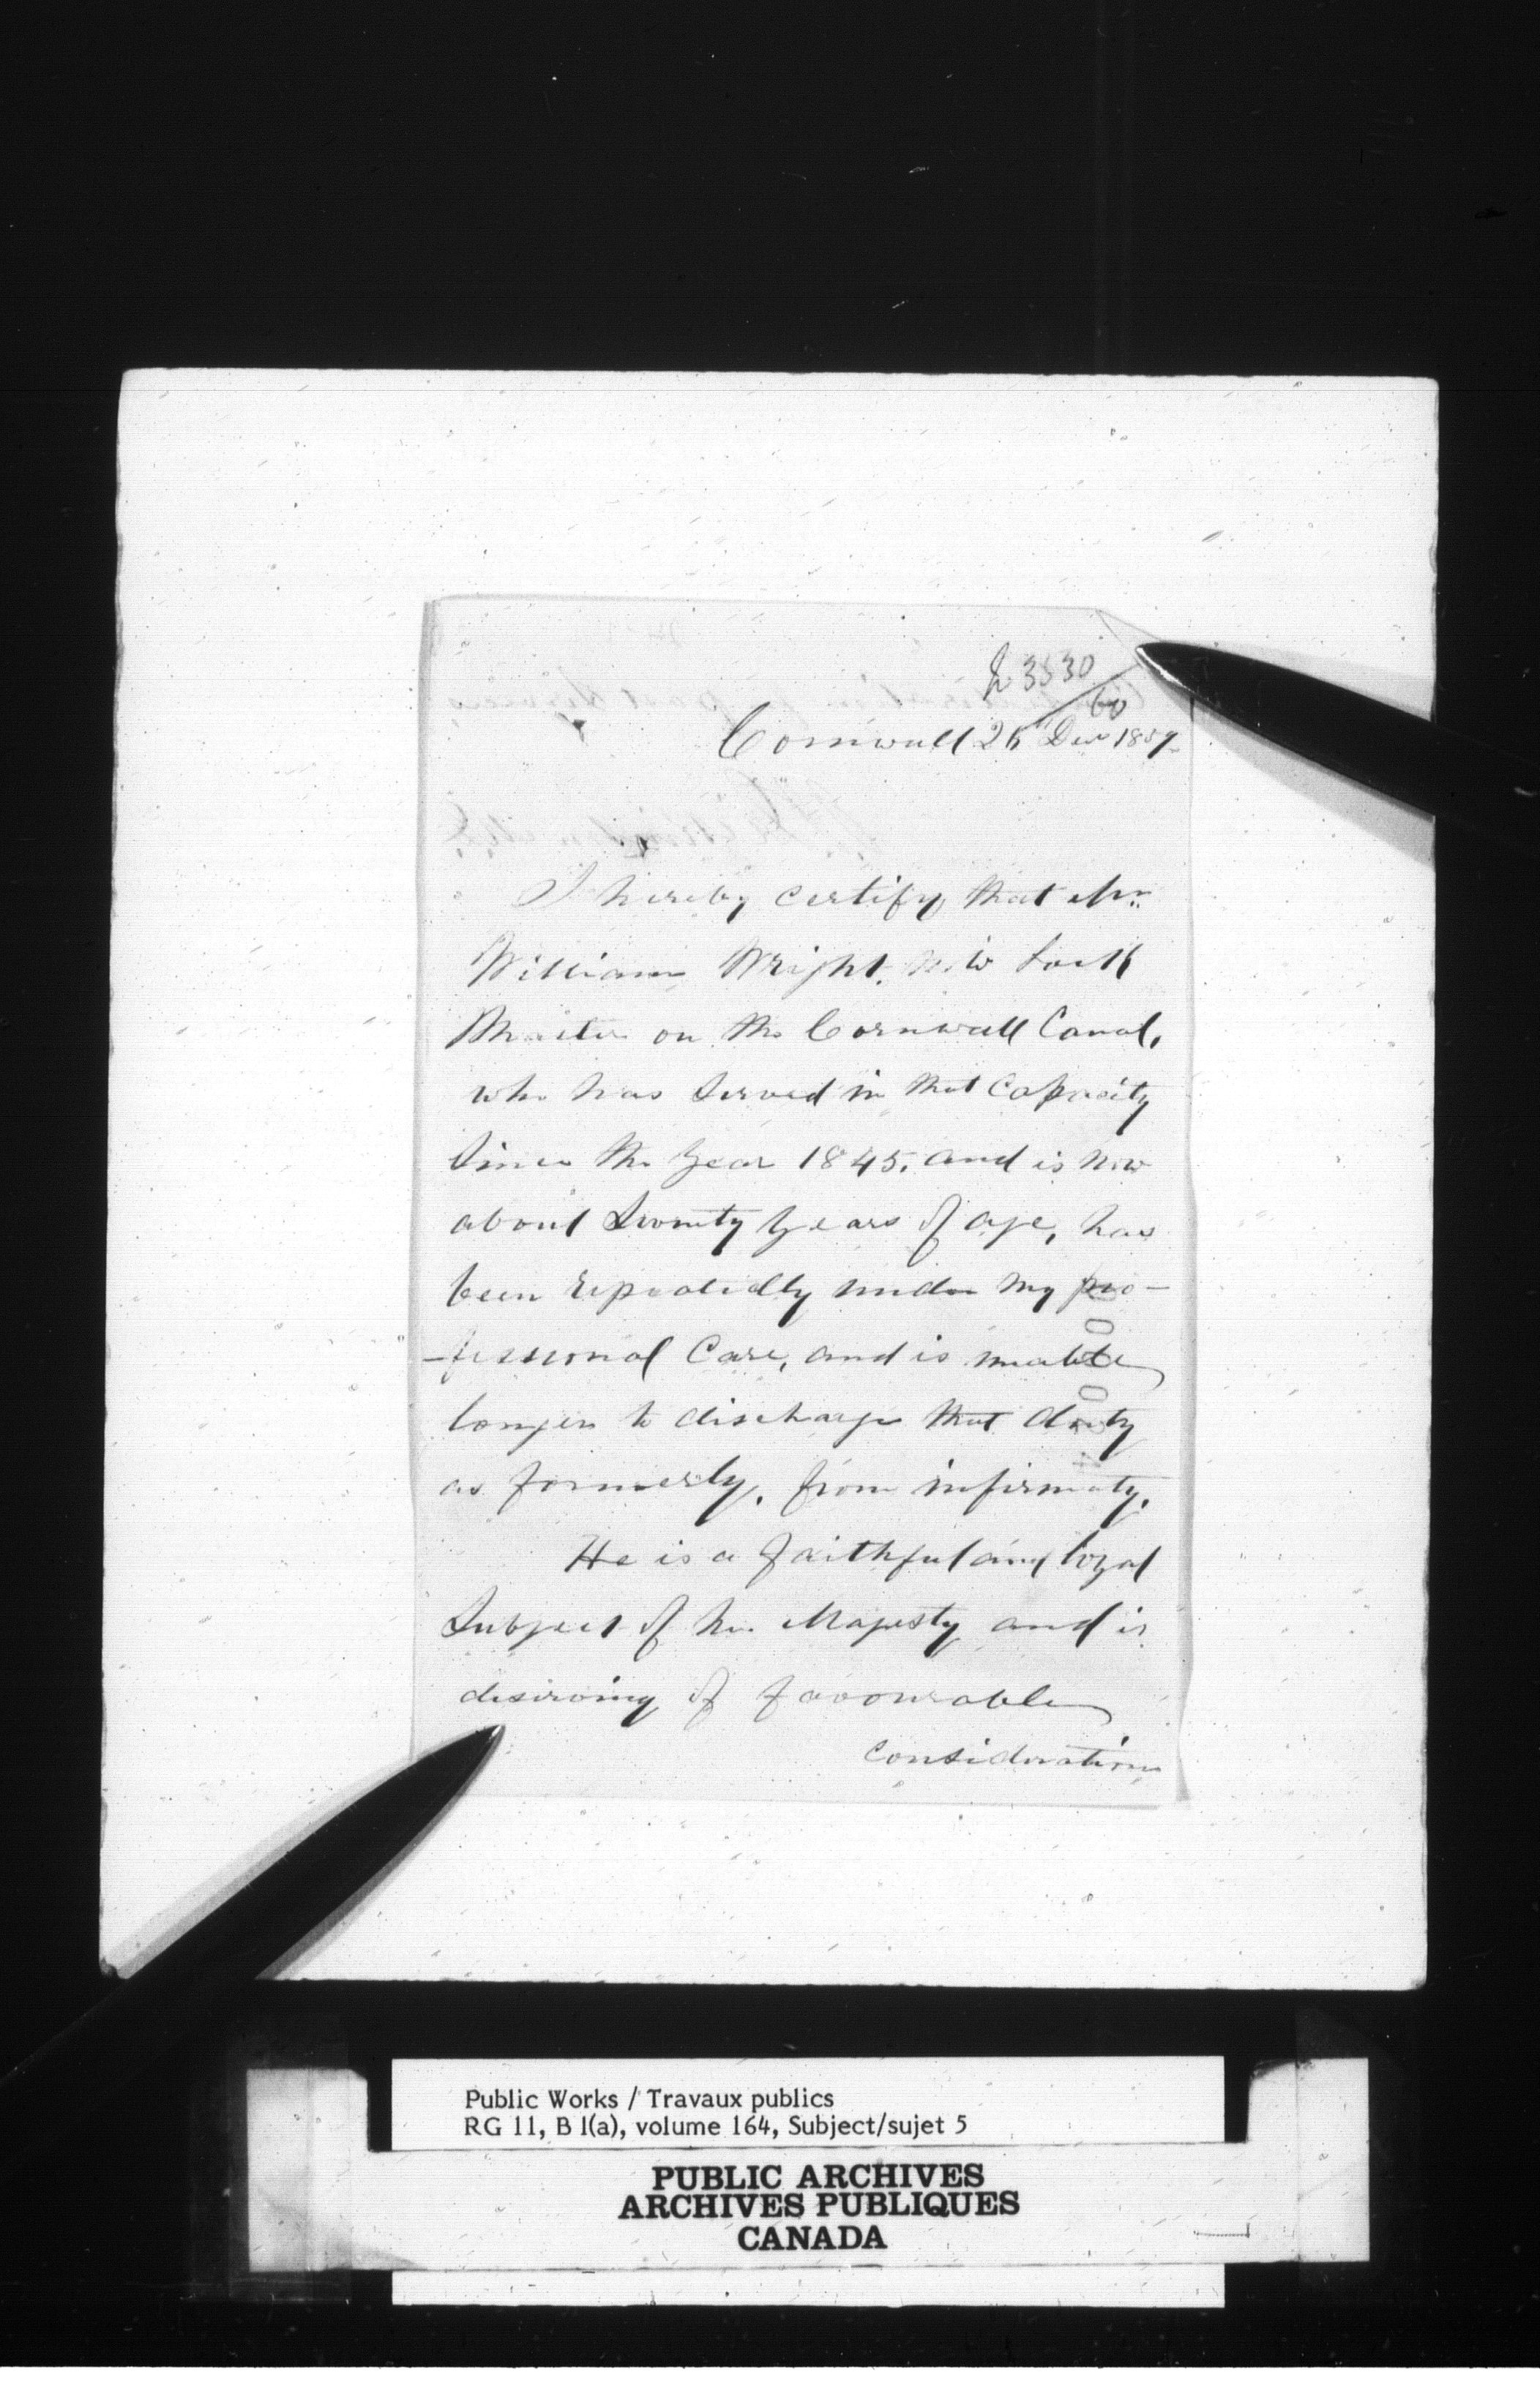 3530
60
Cornwall 26" Decr 1859
I hereby certify that Mr.
William Wright, now Lock
Master on the Cornwall Canal,
who has served in that Capacity
Since the Year 1845, and is now
about Seventy Years of age, has
been repeatedly under my pro-
-fessional Care, and is unable
longer to discharge that duty
as formerly, from infirmity.
He is a faithful and loyal
Subject of her Majesty and is
deserving of favourable
Consideration
Public Works / Travaux publics
RG 11, B 1(a), volume 164, Subject/sujet 5
PUBLIC ARCHIVES
ARCHIVES PUBLIQUES
CANADA